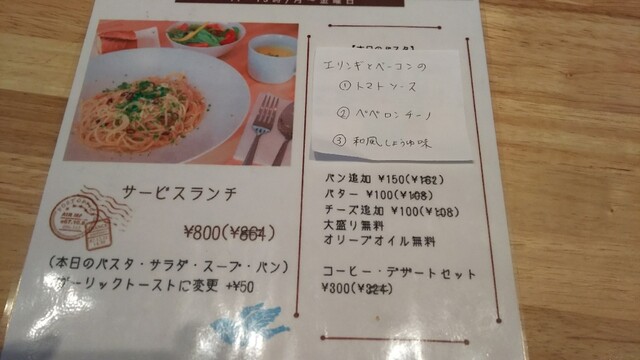 サービスランチ
¥800(¥864)
(本日のパスタ・サラダ・スープ・パン)
ガーリックトーストに変更 +¥50
【本日のパスタ】
エリンギとベーコンの
① トマトソース
② ペペロンチーノ
③ 和風しょうゆ味
パン追加 ¥150(¥162)
バター ¥100(¥108)
チーズ追加 ¥100(¥108)
大盛り無料
オリーブオイル無料
コーヒー・デザートセット
¥300(¥324)